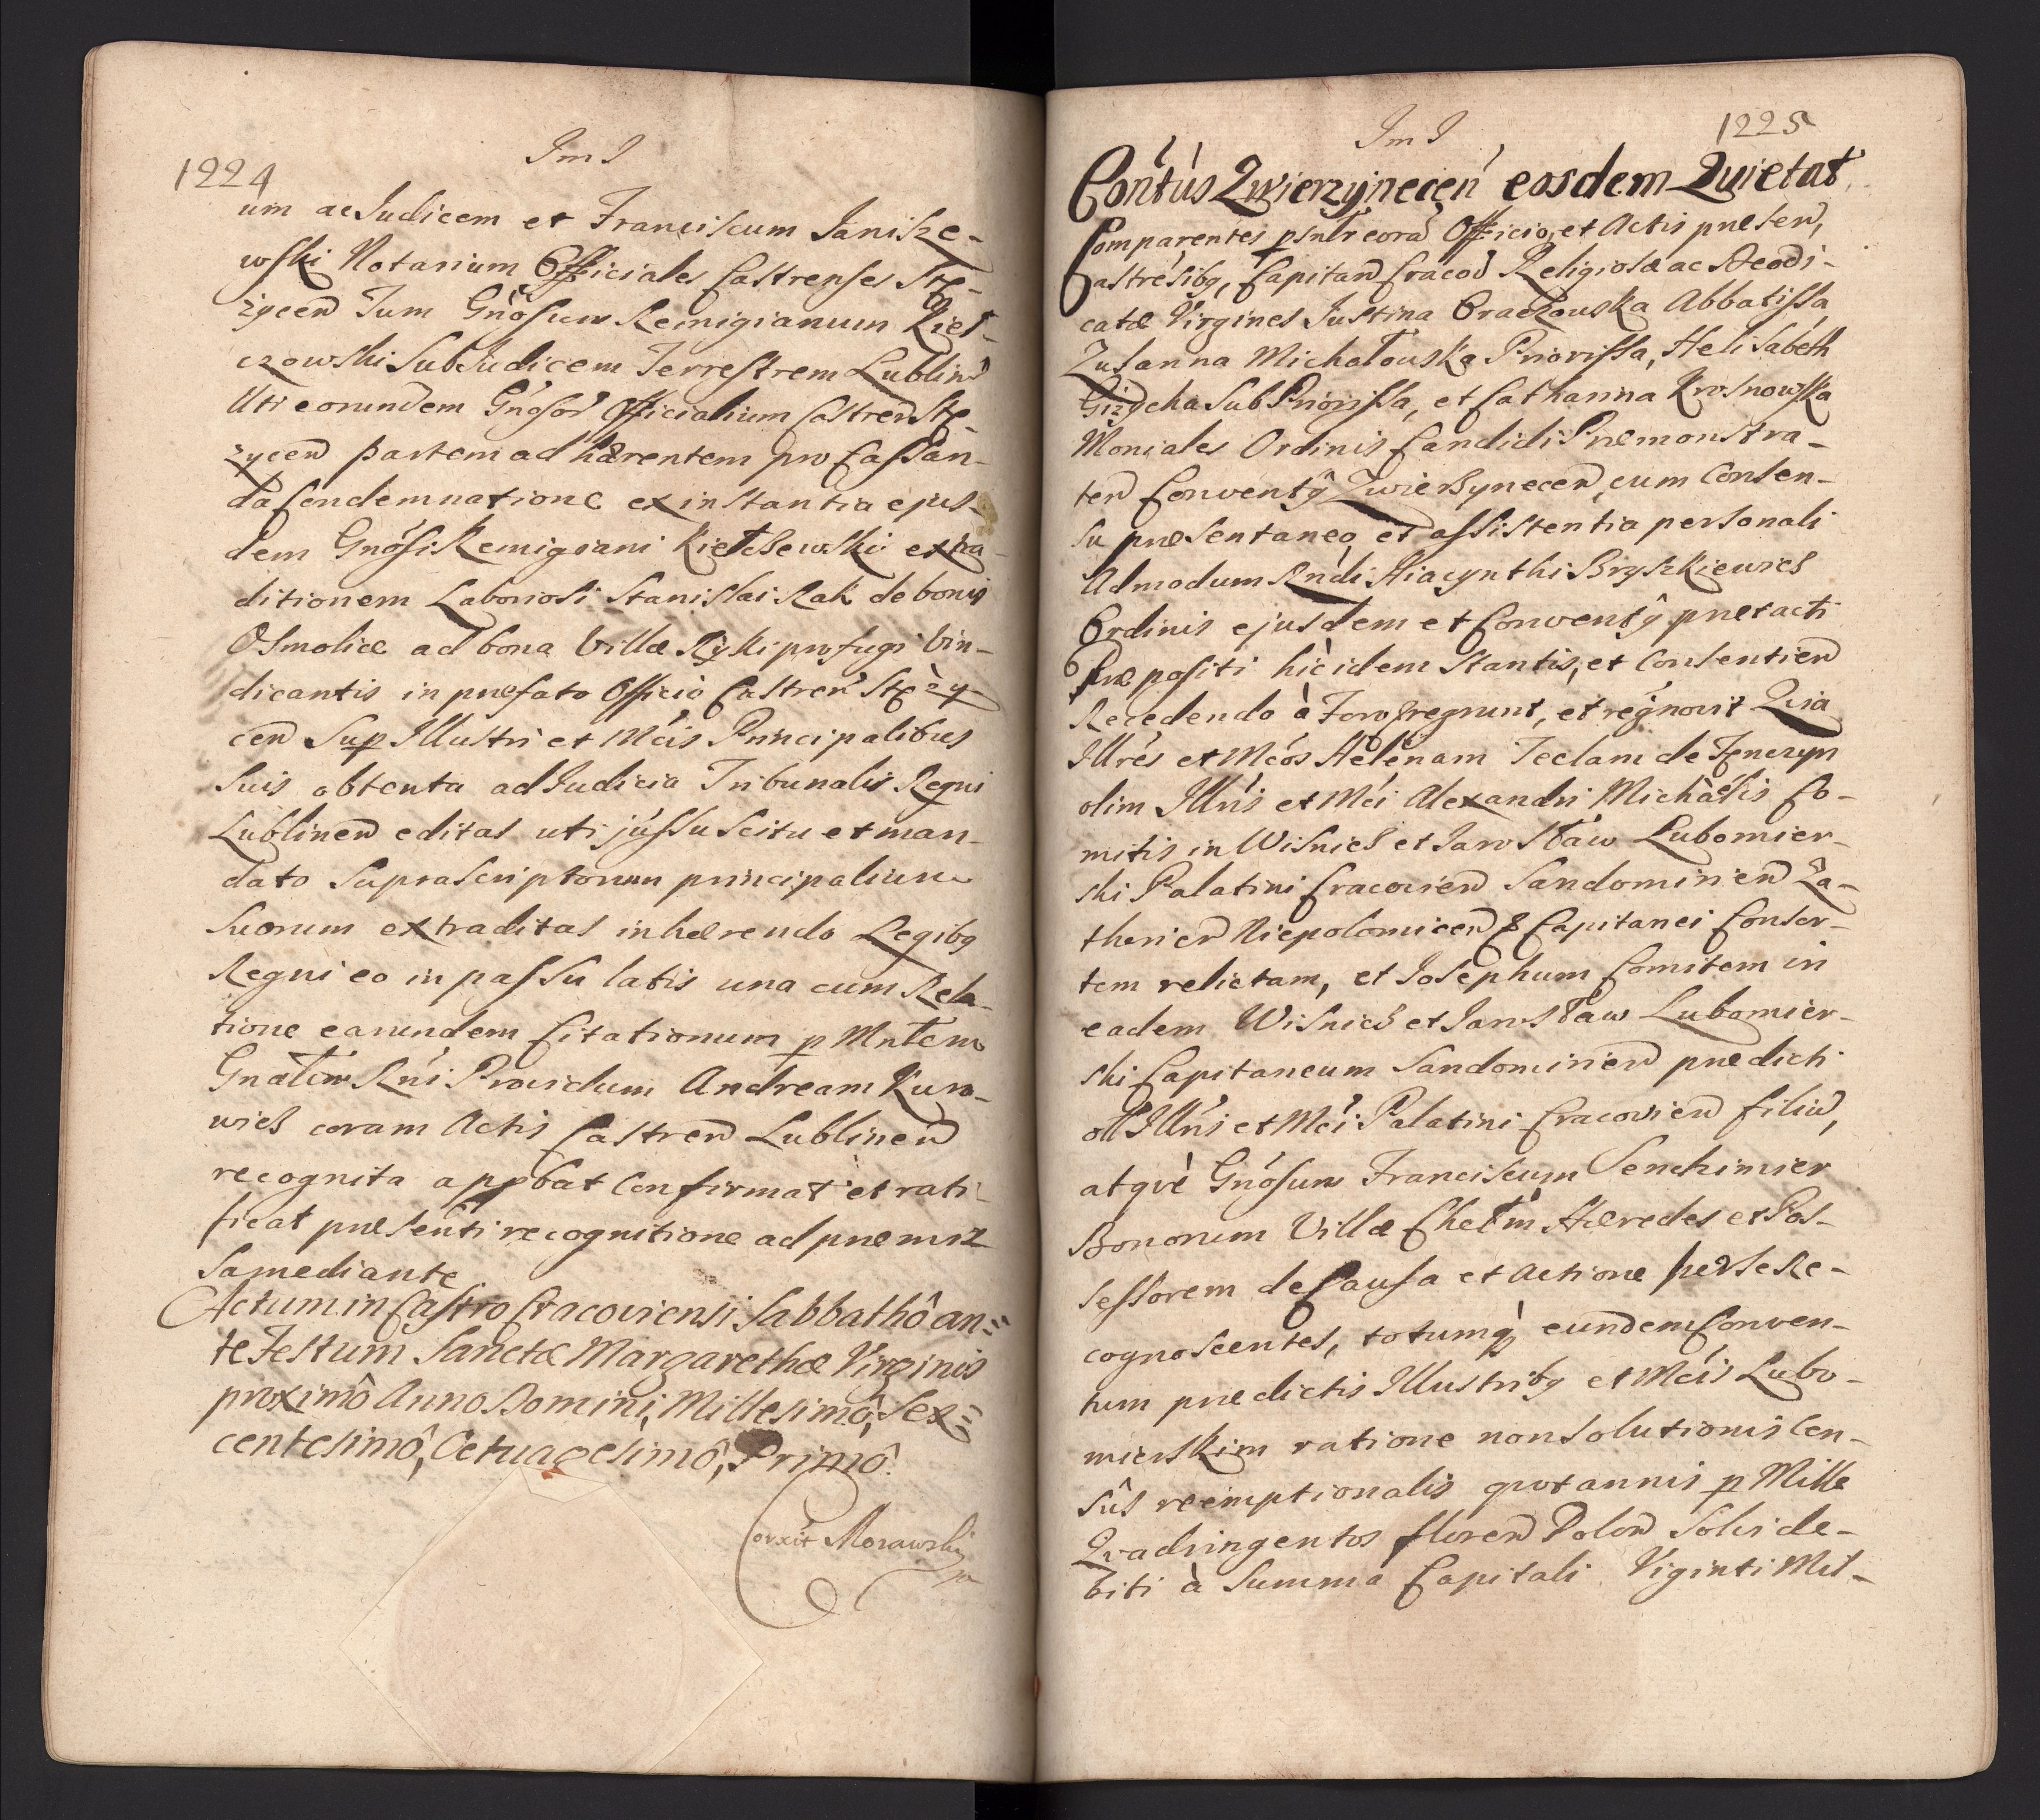 1224
ImI
um ac Judicem et Franciscum Janisze-
wski Notarium Officiales Castrenses Stę-
życen Tum Gnosum Remigianum Kieł-
czowski SubJudicem Terrestrem Lublin
Uti eorundem Gnosor Officialium Castren Stę-
zycen partem ad hærentem pro Cassan-
da Condemnatione ex instantia ejus-
dem Gnosi Remigiani Kiełczewski extra-
ditionem Laboriosi Stanislai Rak de bonis
Osmolice ad bona Villæ Ryki profugi Vin-
dicantis in præfato Officio Castren Stęży-
cen Sup Illustri et Mcis Principalibus
Suis obtenta ad Judicia Tribunalis Regni
Lublinen editas uti jussu Scitu et man-
dato Suprascriptorum principalium
Suorum extraditas inhærendo Legibq
Regni eo in passu latis una cum Rela-
tione earundem Citationum p Mntem
Gnalem Rni Providum Andream Kuro-
wicz coram Actis Castren Lublinen
recognita appbat Confirmat et rati-
ficat præsenti recognitione ad præmiz
Sa mediante
Actum in Castro Cracoviensi Sabbathô an=
te Festum Sanctæ Margarethæ Virginis
proximô Anno Domini, Millesimô, Sex=
centesimô, Octuagesimô, Primô.
Corxit Morawski
1225
ImI
Contus Zwierzynecen eosdem Quietat
Comparentes psntr cora Officio, et Actis præsen,
Castresibq, Capitan Cracov Religiosæ ac Deodi-
catæ Virgines Justina Oraczowska Abbatissa,
Zusanna Michałowska Priorissa, Helisabeth
Gizycka SubPriorissa, et Catharina Krosnowska
Moniales Ordinis Candidi Præmonstra-
ten Conventq Zwierzynecen, cum Consen-
su præsentaneo, et assistentia personali
Admodum Rndi Hiacynthi Bryszkiewicz
Ordinis ejusdem et Conventq prætacti
Præpositi hic idem Stantis, et Consentien
Recedendo à Foro regnunt, et regnovit Quia
Illres et Mcos Helenam Teclam de Tenczyn
olim Illris et Mci Alexandri Michaelis Co-
mitis in Wisnicz et Jarosław Lubomier-
ski Palatini Cracovien Sandomirien Za-
thorien Niepolomicen & Capitanei Consor-
tem relictam, et Josephum Comitem in
eadem Wisnicz et Jarosław Lubomier-
ski Capitaneum Sandomirien prædicti
oll Illris et Mci Palatini Cracovien filiu,
atqve Gnosum Franciscum Senchimier
Bonorum Villæ Chełm Hæredes et Pos-
sessorem de Causa et Actione per Se Re-
cognoscentes, totumq eundem Conven-
tum prædictis Illustribq et Mcis Lubo-
mierskim ratione non Solutionis Cen-
sûs reemptionalis quotannis p Mille
Quadringentos floren Polon Solvi de-
biti à Summa Capitali Viginti Mil-